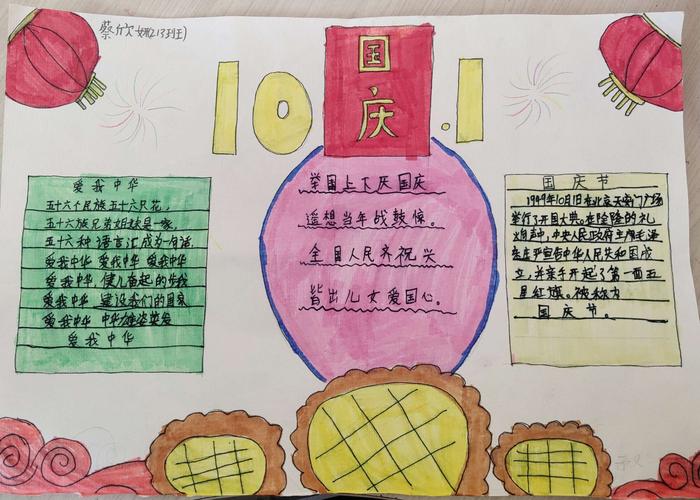 蔡欣
国庆
10.1
爱我中华
五十六个民族五十六只花,
五十六族兄弟姐妹是一家,
五十六种语言汇成一句话
爱我中华 爱我中华 爱我中华
爱我中华 健儿奋起的步伐
爱我中华 建设我们的国家
爱我中华 中华雄姿英发
爱我中华
举国上下庆国庆
遥想当年战鼓催。
全国人民齐祝兴
皆出儿女爱国心。
国庆节
1949年10月1日在北京天安门广场
举行了开国大典。在隆隆的礼
炮声中,中央人民政府主席毛泽
东庄严宣告中华人民共和国成
立,并亲手升起了第一面五
星红旗。被称为
国庆节。